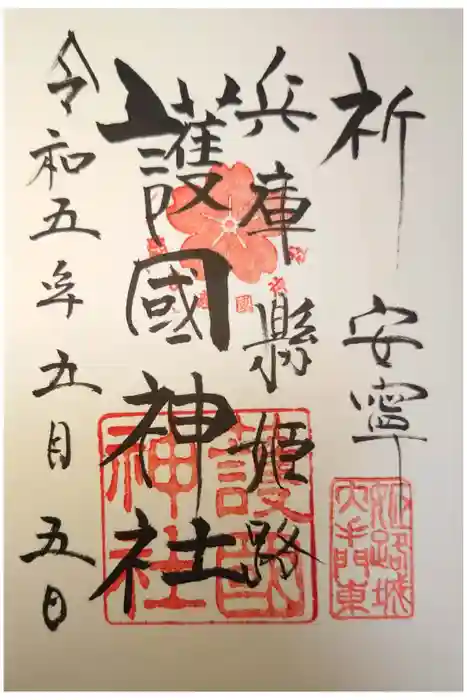 祈 安寧
兵庫縣姫路
護國神社
令和五年五月五日
護國神社
姫路城
大手門東